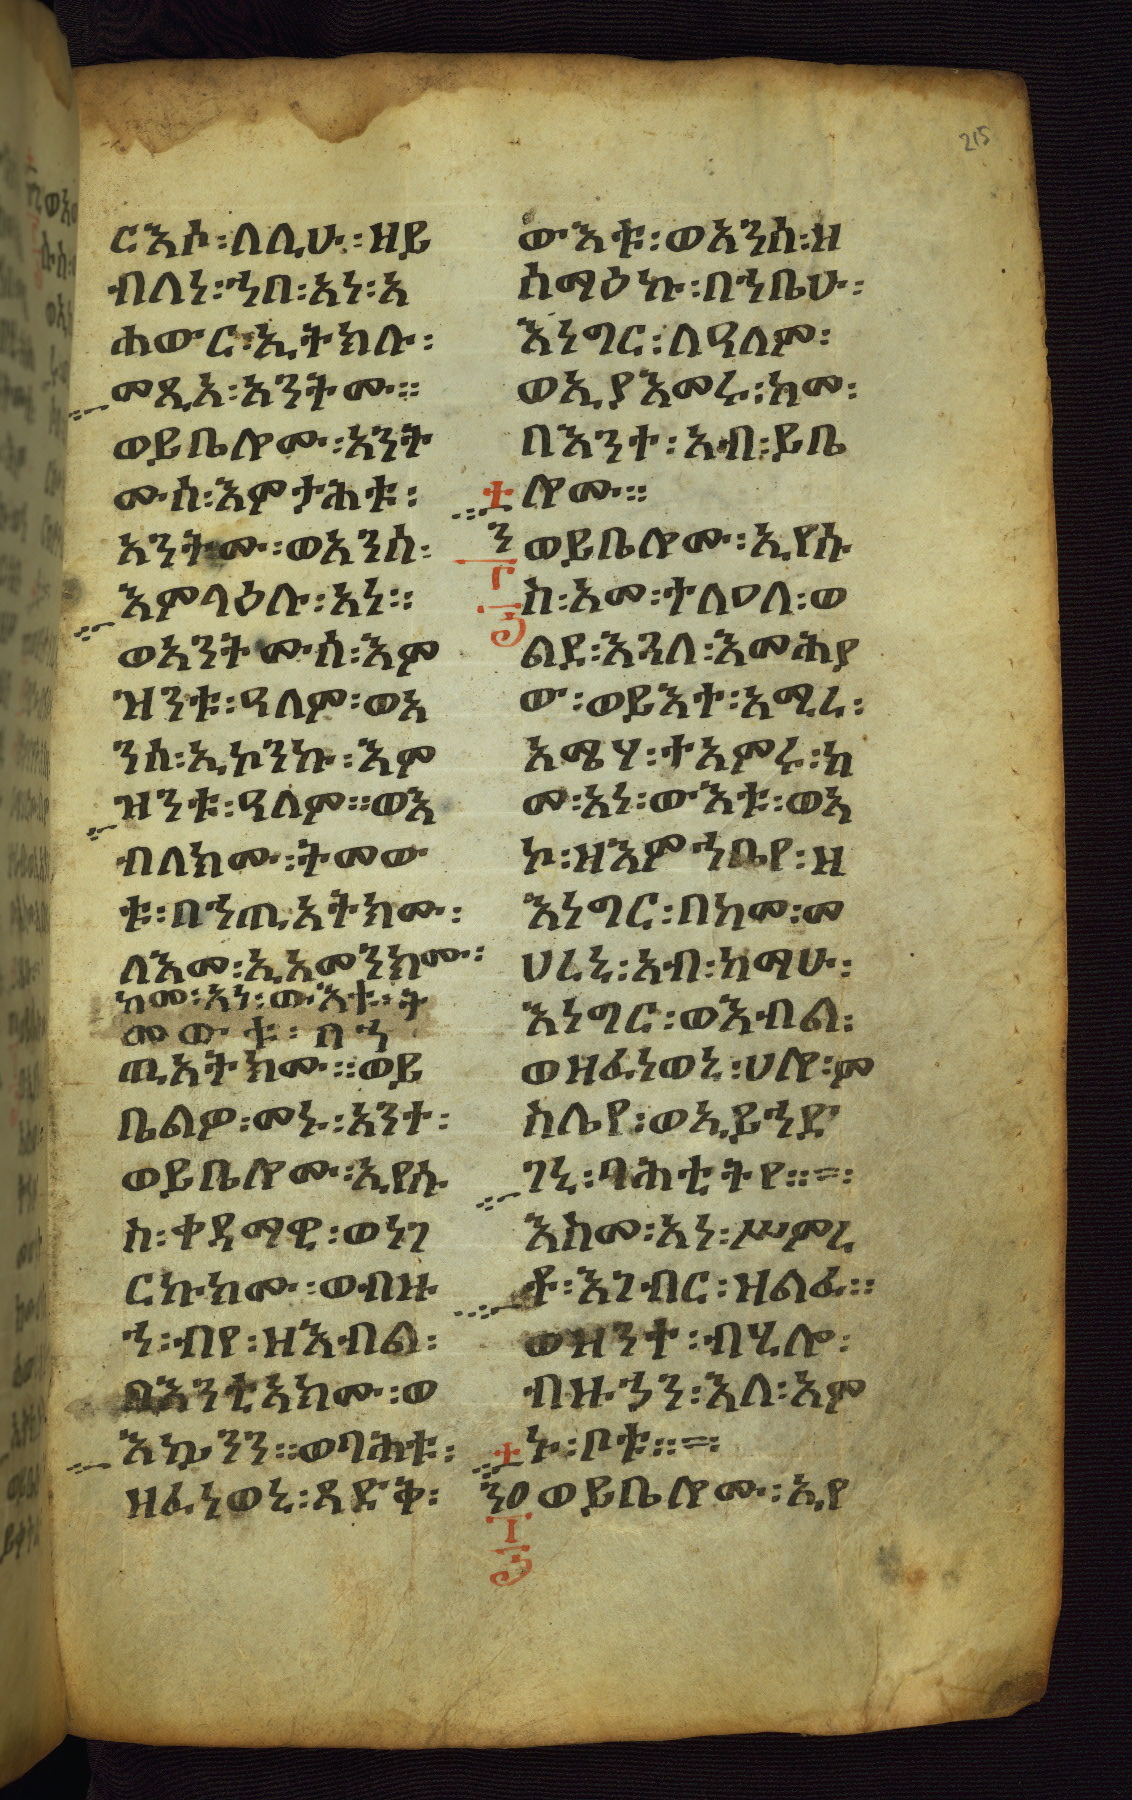 215
ርእሶ፡ለሊሁ፡ዘይ
ብለነ፡ኀበ፡አነ፡አ
ሐውር፡ኢትክሉ፡
መጺአ፡አንትሙ።
ወይቤሎሙ፡አንት
ሙሰ፡እምታሕቱ፡
አንትሙ፡ወአንሰ፡
እምላዕሉ፡አነ።
ወአንትሙሰ፡እም
ዝንቱ፡ዓለም፡ወአ
ንሰ፡ኢኮንኩ፡እም
ዝንቱ፡ዓለም።ወእ
ብለክሙ፡ትመው
ቱ፡በኀጢአትክሙ፡
ለእመ፡ኢአመንክሙ፡
ከመ፡አነ፡ውእቱ፡ት
መውቱ፡በኀ
ጢአትክሙ።ወይ
ቤልዎ፡መኑ፡አንተ፡
ወይቤሎሙ፡ኢየሱ
ስ፡ቀዳማዊ፡ወነገ
ርኩክሙ፡ወብዙ
ኀ፡ብየ፡ዘእብል፡
በእንቲአክሙ፡ወ
እኴንን።ወባሕቱ፡
ዘፈነወኒ፡ጻድቅ፡
ውእቱ፡ወአንሰ፡ዘ
ሰማዕኩ፡በኀቤሁ፡
እነግር፡ለዓለም፡
ወኢያእመሩ፡ከመ፡
በእንተ፡አብ፡ይቤ
ሎሙ።
ወይቤሎሙ፡ኢየሱ
ስ፡አመ፡ተለዐለ፡ወ
ልደ፡እጓለ፡እመሕያ
ው፡ወይእተ፡አሚረ፡
አሜሃ፡ተአምሩ፡ከ
መ፡አነ፡ውእቱ፡ወአ
ኮ፡ዘእምኀቤየ፡ዘ
እነግር፡በከመ፡መ
ሀረኒ፡አብ፡ከማሁ፡
እነግር፡ወእብል፡
ወዘፈነወኒ፡ሀሎ፡ም
ስሌየ፡ወኢይኀድ
ገኒ፡ባሕቲትየ።=፡
እስመ፡አነ፡ሥምረ
ቶ፡እገብር፡ዝልፈ።
ወዝንተ፡ብሂሎ፡
ብዙኃን፡እለ፡አም
ኑ፡ቦቱ።=፡
ወይቤሎሙ፡ኢየ